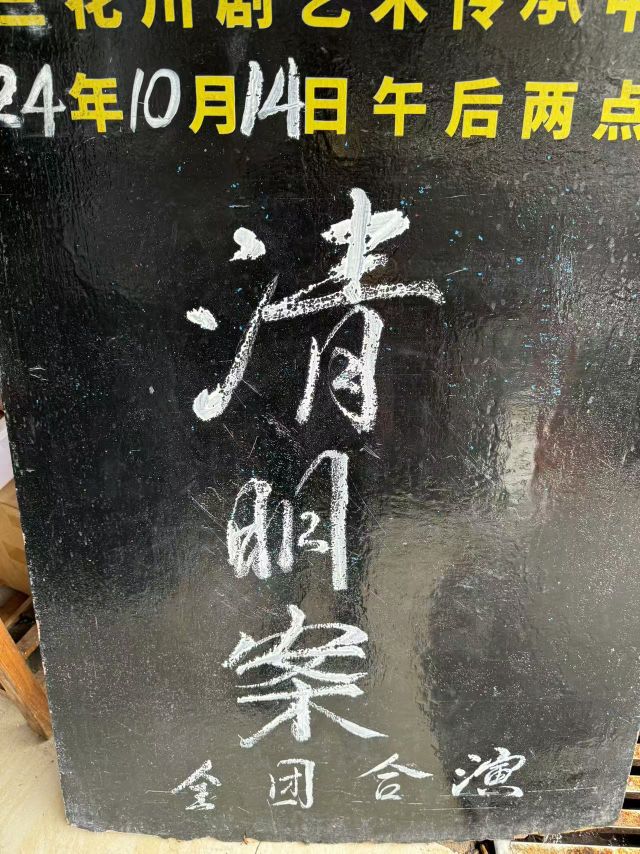 兰花川剧艺术传承中
24年10月14日午后两点
清明案
全团合演